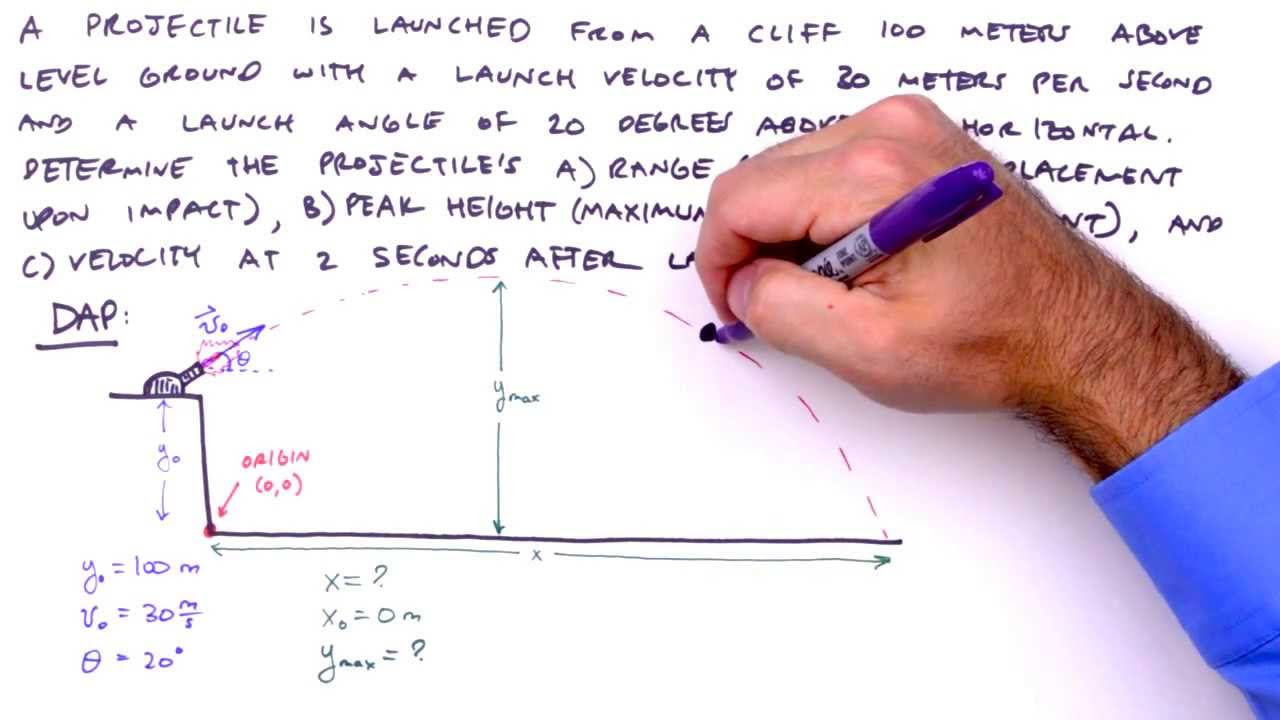 A PROJECTILE IS LAUNCHED FROM A CLIFF 100 METERS ABOVE
LEVEL GROUND WITH A LAUNCH VELOCITY OF 30 METERS PER SECOND
AND A LAUNCH ANGLE OF 20 DEGREES HORIZONTAL.
DETERMINE THE PROJECTILE'S A) RANGE
UPON IMPACT), B) PEAK HEIGHT ( ), AND
C) VELOCITY AT 2 SECONDS AFTER
DAP:
v⃗₀
θ
y max
y₀
ORIGIN
(0,0)
x
y₀ = 100 m
v₀ = 30 m/s
θ = 20°
x = ?
x₀ = 0 m
y max = ?